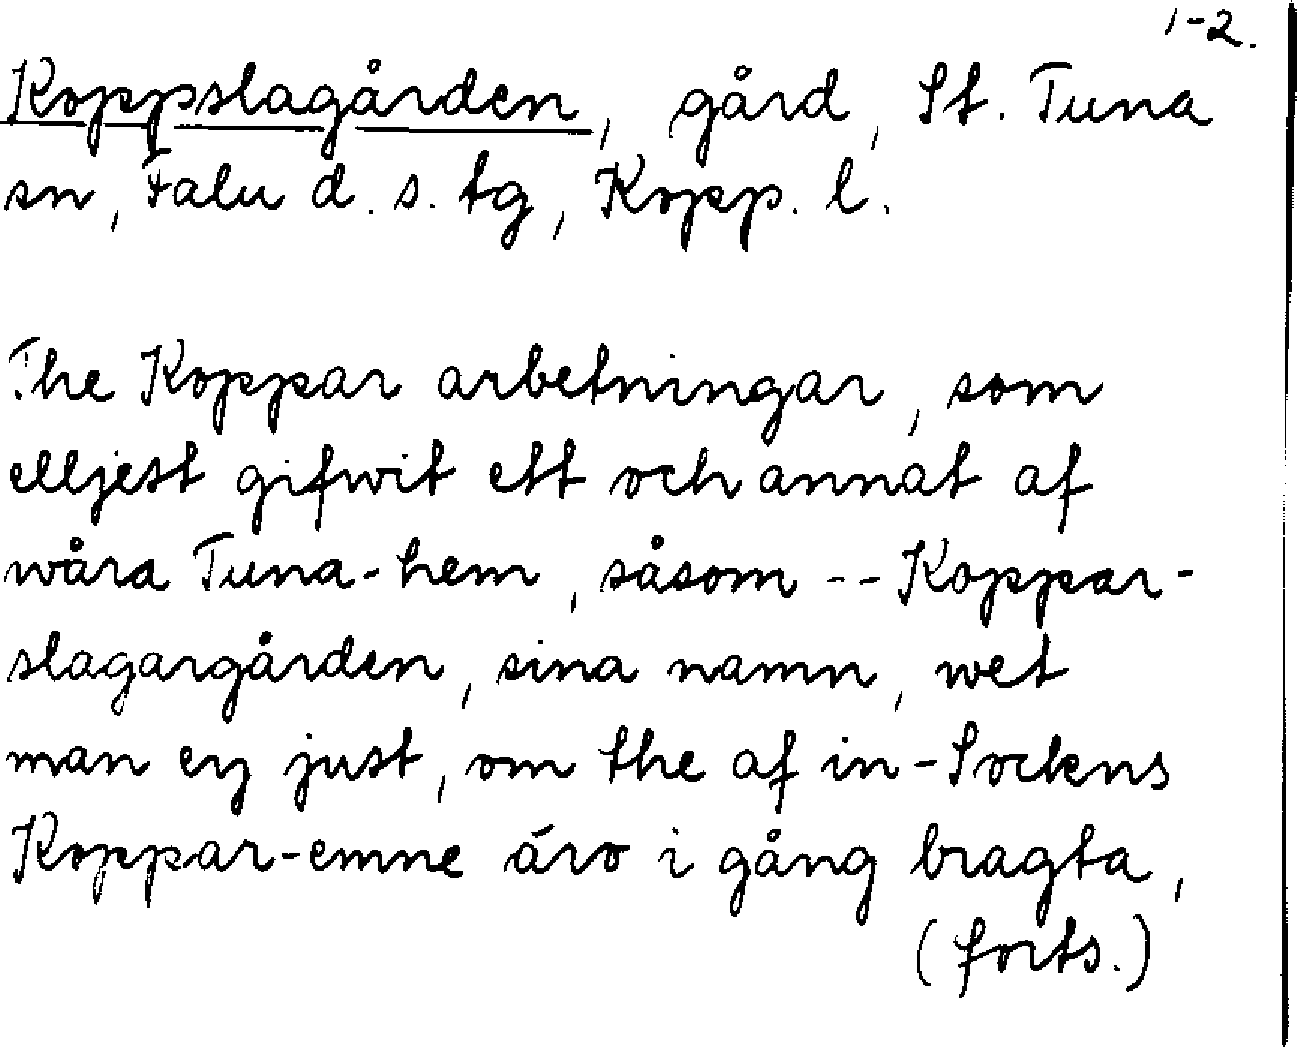 1-2.
Koppslagården, gård, St. Tuna
sn, Falu d. s. tg, Kopp. l.
The Koppar arbetningar, som
elljest gifwit ett och annat af
wåra Tuna-hem, såsom -- Koppar-
slagargården, sina namn, wet
man ey just, om the af in-Sockens
Koppar-emne äro i gång bragta,
(forts.)